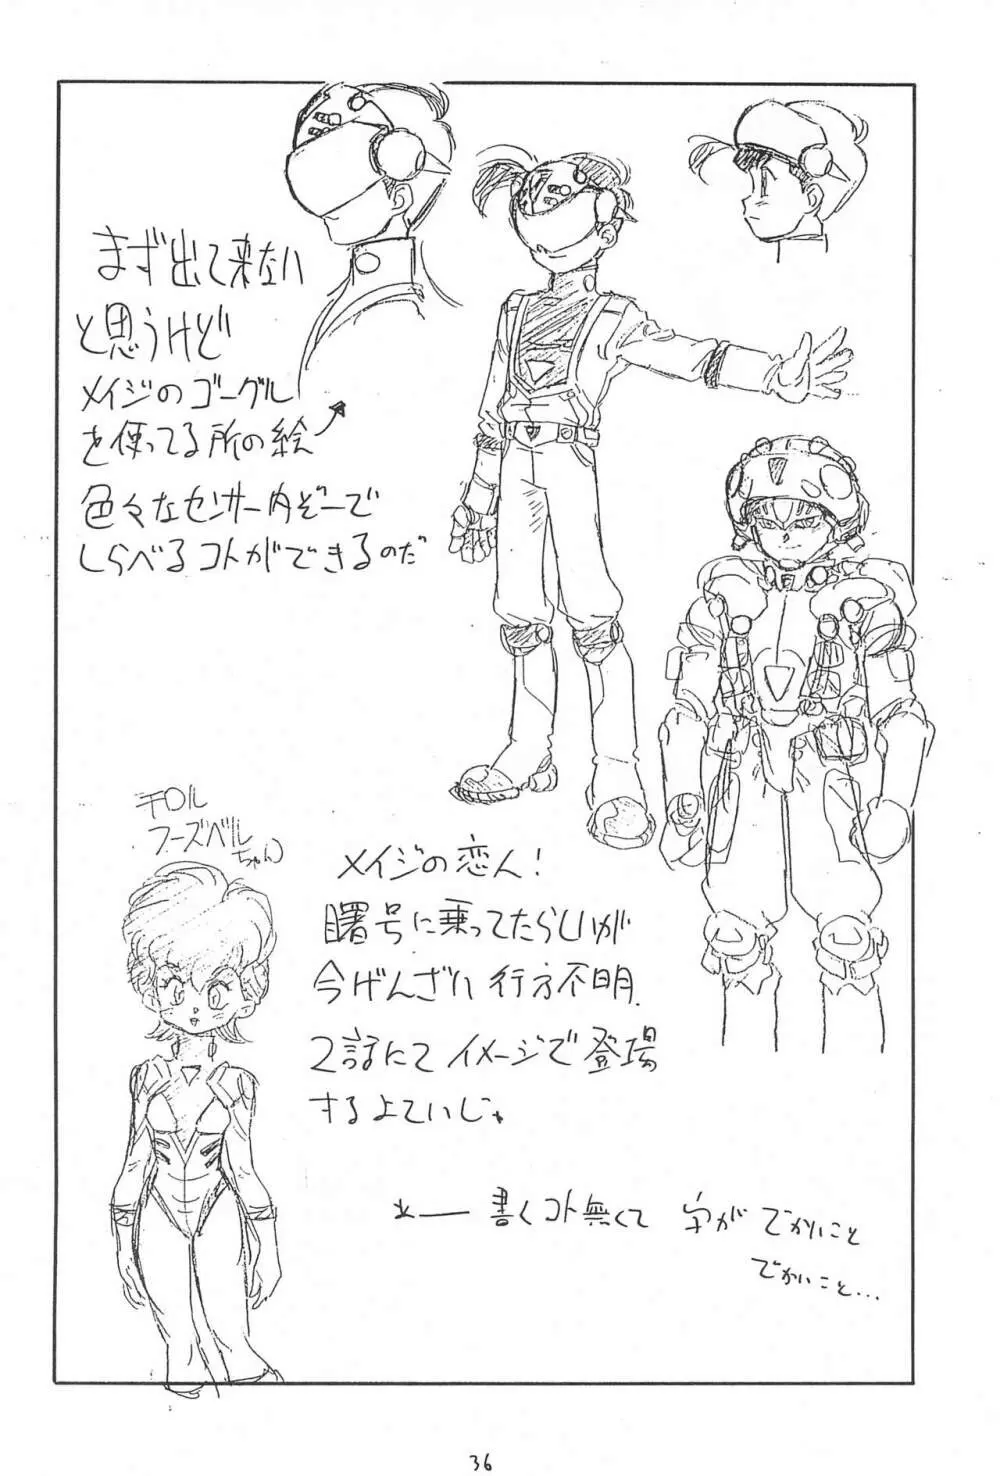 まず出て来ない
と思うけど
メイジのゴーグル
を使ってる所の絵
色々なセンサー内ぞーで
しらべるコトができるのだ
チロル
フーズベル
ちゃん
メイジの恋人!
曙号に乗ってたらしいが
今げんざい行方不明.
2話にてイメージで登場
するよていじゃ
*― 書くコト無くて 字がでかいこと
でかいこと…
36